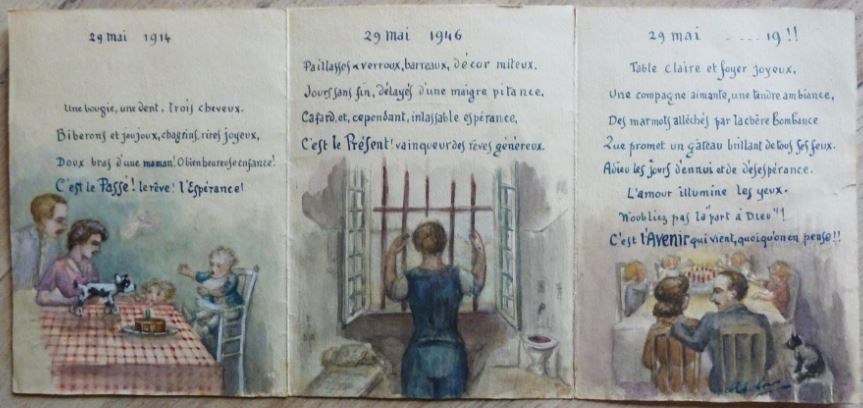 29 mai 1914
Une bougie, une dent, trois cheveux.
Biberons et joujoux, chagrins, rires joyeux,
Doux bras d'une maman! O bienheureuse enfance!
C'est le Passé! le rêve! l'Espérance!
29 mai 1946
Paillasses & verroux, barreaux, décor miteux.
Jours sans fin, délayés d'une maigre pitance.
Cafard, et, cependant, inlassable espérance,
C'est le Présent! vainqueur des rêves généreux.
29 mai .... 19!!
Table claire et foyer joyeux.
Une compagne aimante, une tendre ambiance,
Des marmots alléchés par la chère Bombance
Que promet un gâteau brillant de tous ses feux.
Adieu les jours d'ennui et de désespérance.
L'amour illumine les yeux.
N'oubliez pas la "part à Dieu"!
C'est l'AVENIR qui vient, quoiqu'on en pense!!